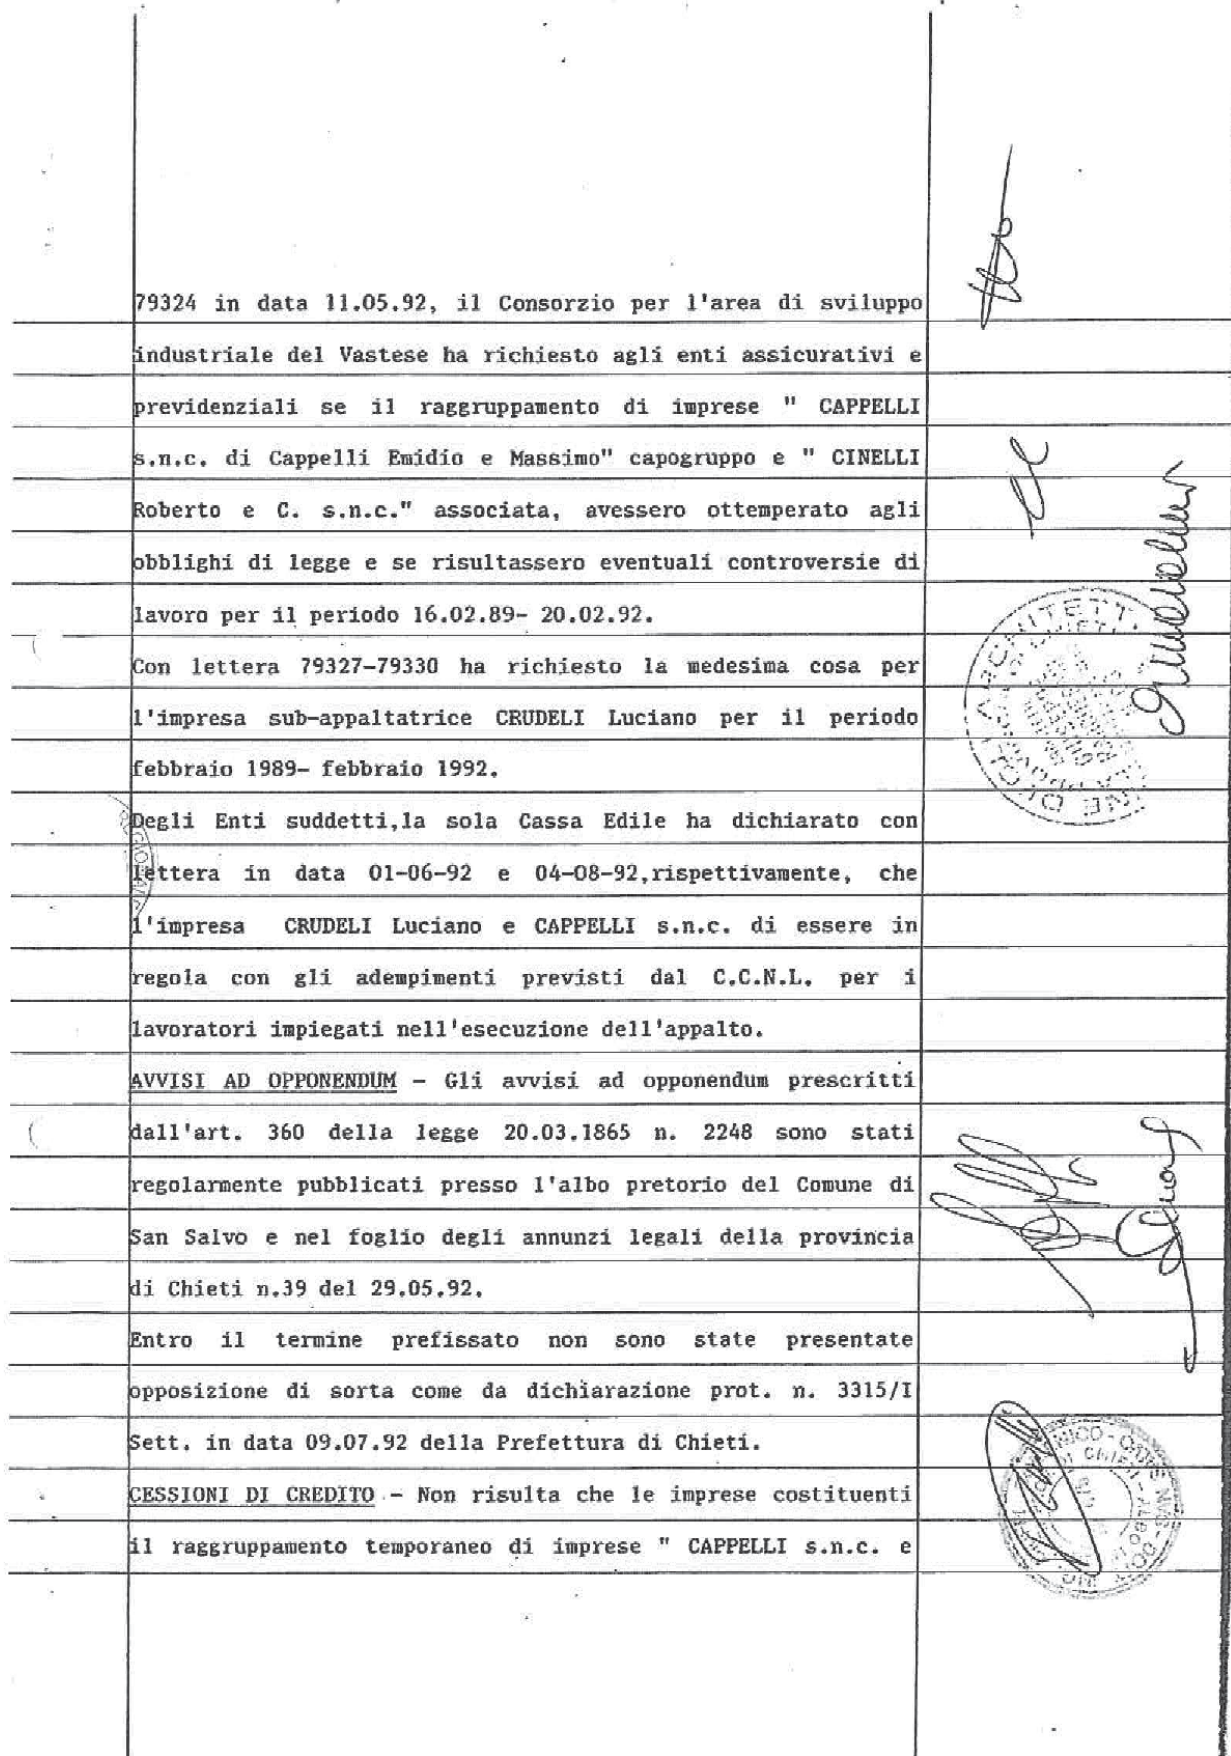 79324 in data 11.05.92, il Consorzio per l'area di sviluppo
industriale del Vastese ha richiesto agli enti assicurativi e
previdenziali se il raggruppamento di imprese " CAPPELLI
s.n.c. di Cappelli Emidio e Massimo" capogruppo e " CINELLI
Roberto e C. s.n.c." associata, avessero ottemperato agli
obblighi di legge e se risultassero eventuali controversie di
lavoro per il periodo 16.02.89- 20.02.92.
Con lettera 79327-79330 ha richiesto la medesima cosa per
l'impresa sub-appaltatrice CRUDELI Luciano per il periodo
febbraio 1989- febbraio 1992.
Degli Enti suddetti,la sola Cassa Edile ha dichiarato con
lettera in data 01-06-92 e 04-08-92,rispettivamente, che
l'impresa CRUDELI Luciano e CAPPELLI s.n.c. di essere in
regola con gli adempimenti previsti dal C.C.N.L. per i
lavoratori impiegati nell'esecuzione dell'appalto.
AVVISI AD OPPONENDUM - Gli avvisi ad opponendum prescritti
dall'art. 360 della legge 20.03.1865 n. 2248 sono stati
regolarmente pubblicati presso l'albo pretorio del Comune di
San Salvo e nel foglio degli annunzi legali della provincia
di Chieti n.39 del 29.05.92.
Entro il termine prefissato non sono state presentate
opposizione di sorta come da dichiarazione prot. n. 3315/I
Sett. in data 09.07.92 della Prefettura di Chieti.
CESSIONI DI CREDITO - Non risulta che le imprese costituenti
il raggruppamento temporaneo di imprese " CAPPELLI s.n.c. e